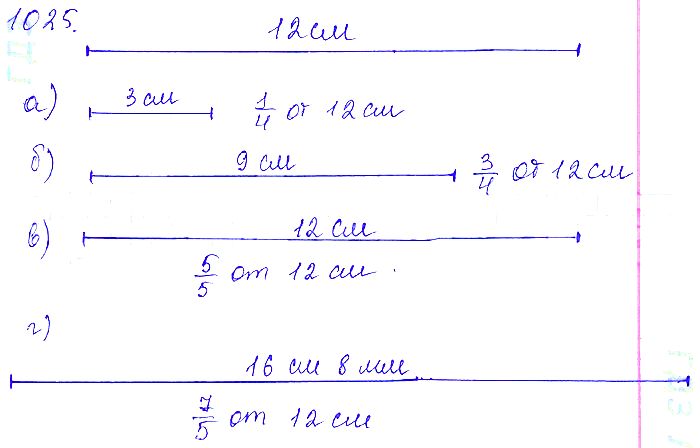 1025.
12 см
а) 3 см 1/4 от 12 см
б) 9 см 3/4 от 12 см
в) 12 см
5/5 от 12 см.
г)
16 см 8 мм
7/5 от 12 см